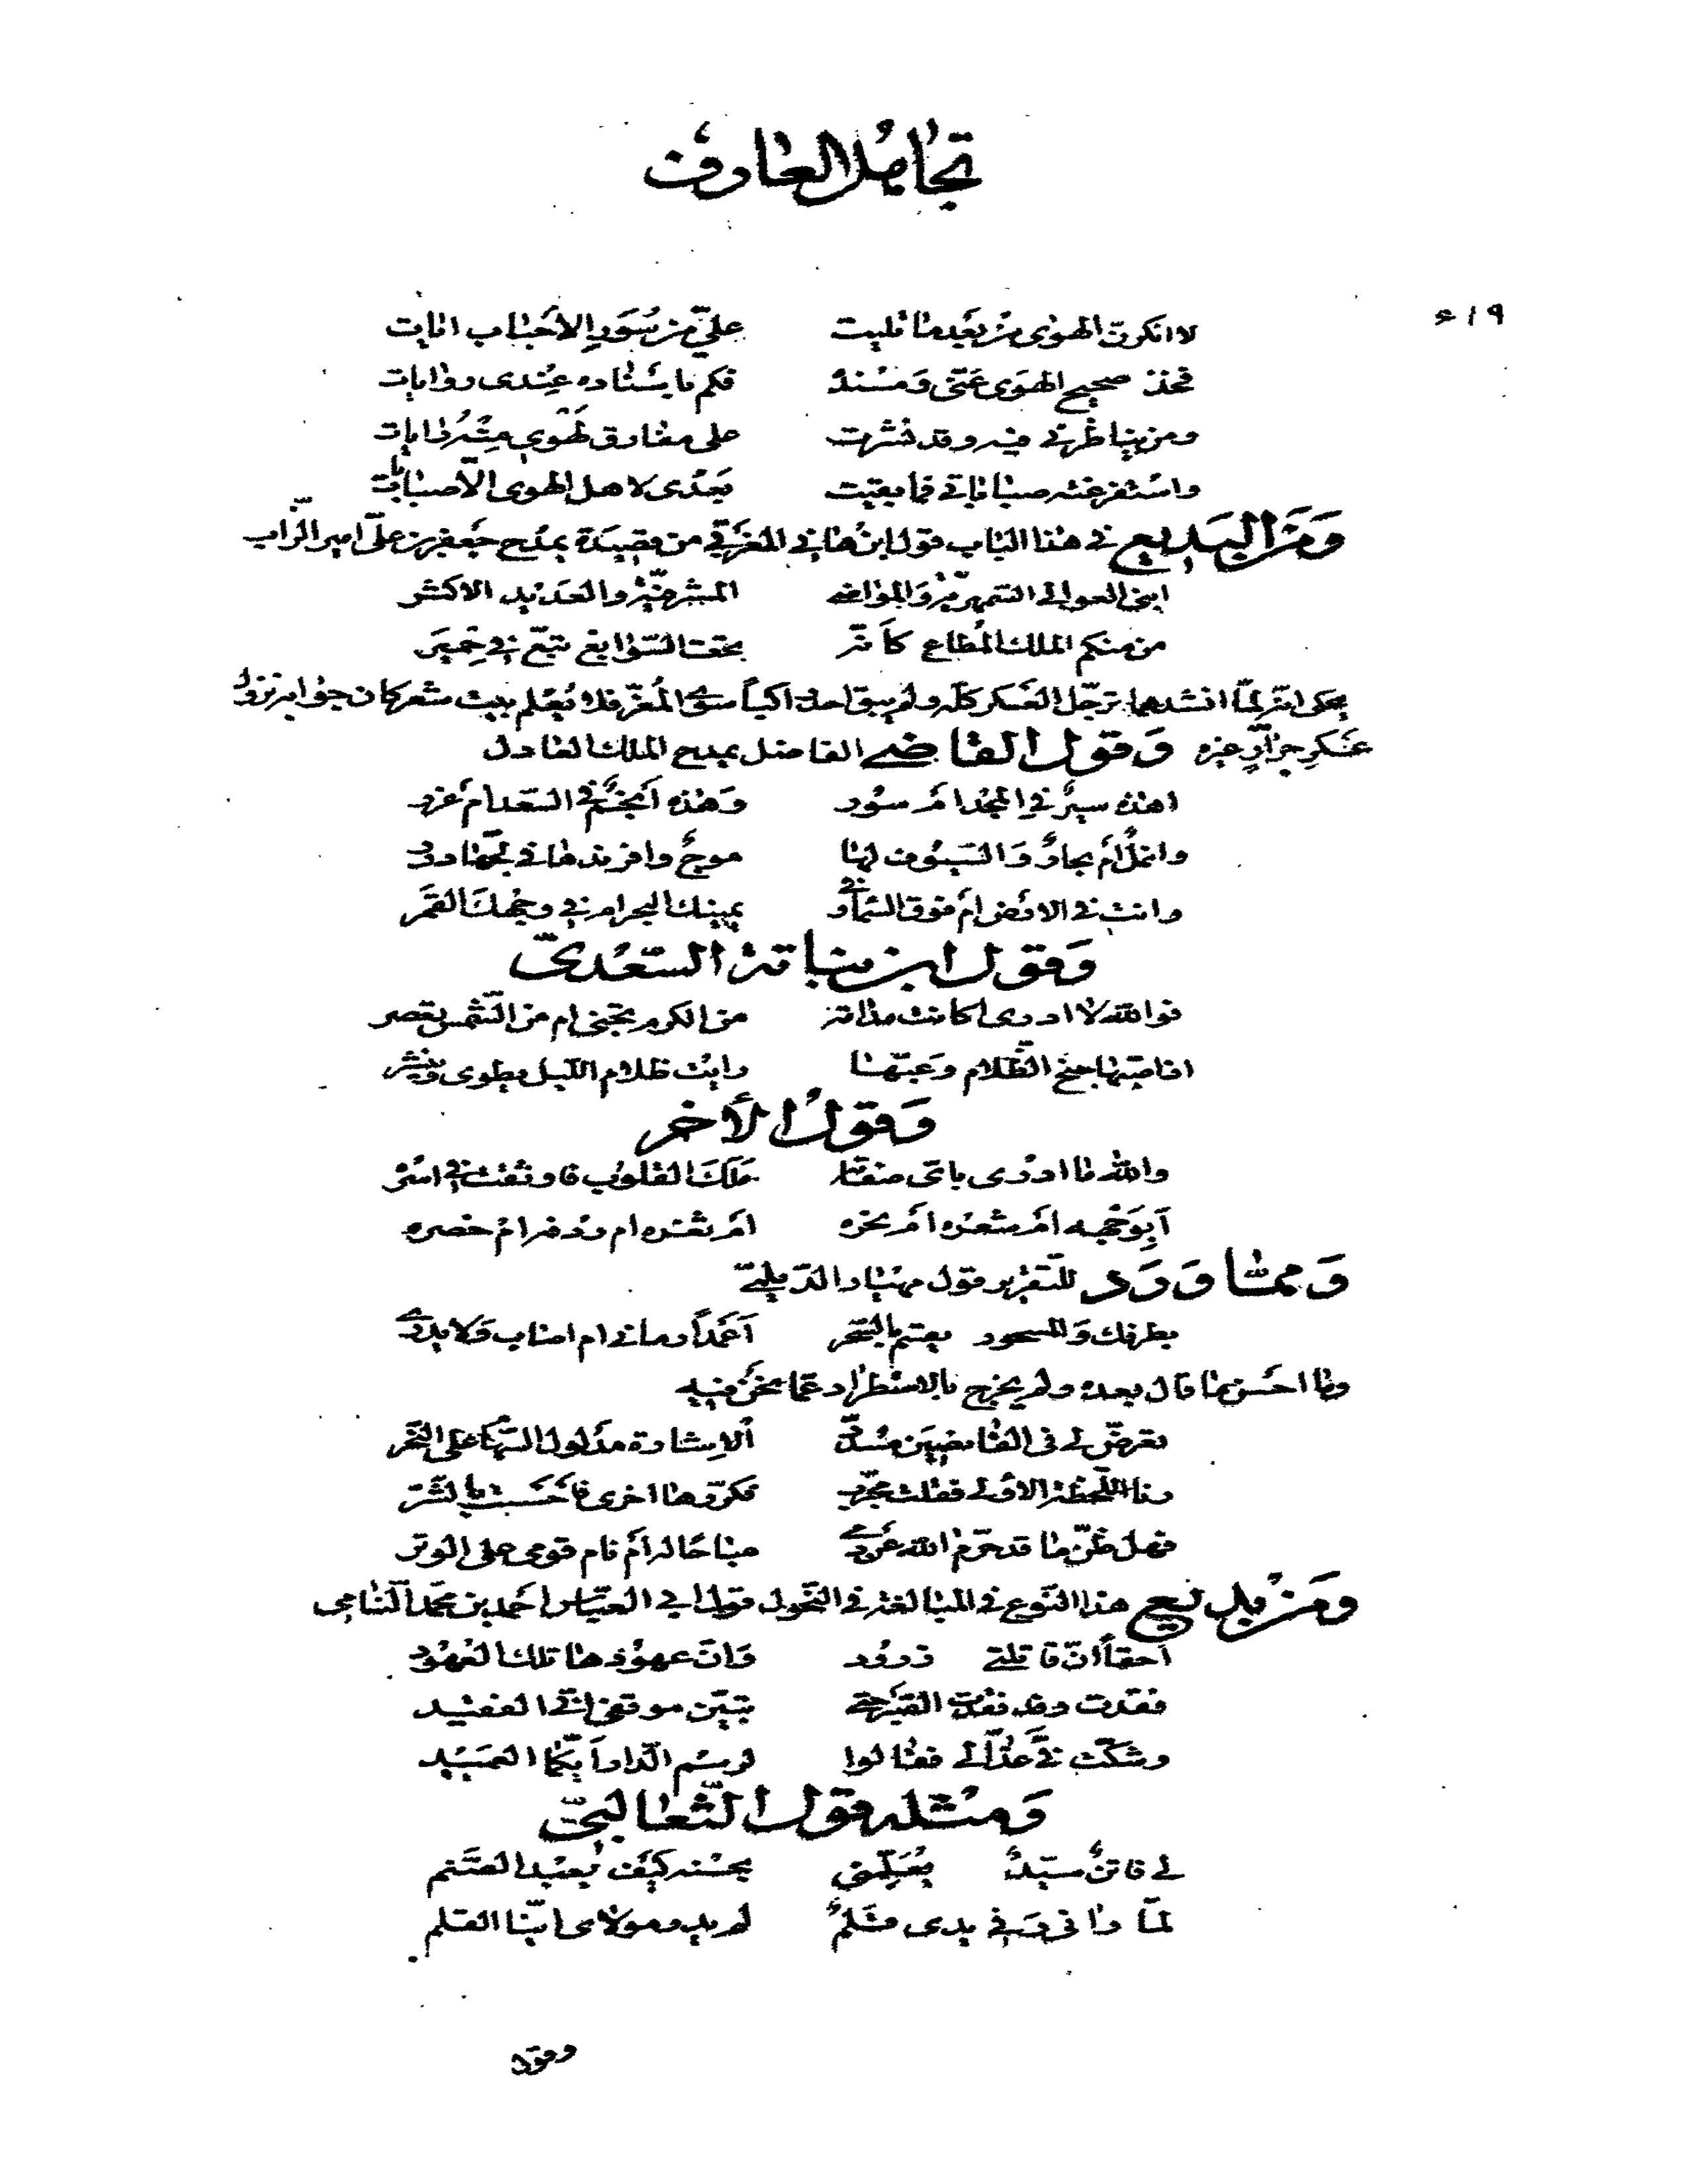 تجاهل العارف
٤١٩
لا انكرت الهوى من بعد ما تليت علي من سور الأحباب ايات
فخذ صحيح الهوى عني ومسنده فكم باسناده عندي روايات
ومن يناظرني فيه وقد نشرت على مفارق لهوي منه رايات
واستفرغته صباباتي فما بقيت بعدى لاهل الهوى الا صبابات
ومن البديع في هذا الباب قول ابن هاني المغربي من قصيدة يمدح جعفر بن علي امير الزاب
ابني العوالي السمهرية والمواضي المشرفية والعديد الاكثر
من منكم الملك المطاع كأنه تحت السوابغ تبع في حمير
يحكى انه لما انشدها ترجل العسكر كله ولم يبق احد راكبا سوى المعز فلا يعلم بيت شعر كان جوابه نزول
عسكر جرار غيره وقول القاضي الفاضل يمدح الملك العادل
اهذه سير في المجد ام سور وهذه انجم في السعد ام غرر
وانمل ام بحار والسيوف لها موج وافرندها في لجها درر
وانت في الارض ام فوق السماء وفي يمينك البحر ام في وجهك القمر
وقول ابن نباتة السعدي
فوالله لا ادري اكانت مدامة من الكرم تجنى ام من الشمس تعصر
اذا صبها جنح الظلام وعبها رايت ظلام الليل يطوى وينشر
وقول الأخر
والله ما ادري باي صفة ملك القلوب فاوثقت في اسره
أبوجهه ام شعره ام نحره ام ثغره ام ردفه ام خصره
ومما ورد للتقرير قول مهيار الديلمي
بطرفك والمسحور يقسم بالسحر أعمدا رماني ام اصاب ولا يدري
وما احسن ما قال بعده ولم يخرج بالاستطراد عما نحن فيه
تعرض لي في القانصين مسدد الاشارة مدلول السهام على النحر
رنا اللحظة الاولى فقلت مجرب فكررها اخرى فأحسست بالشر
فهل ظن ما قد حرم الله من دمي مباحا له ام نام قومي على الوتر
ومن بديع هذا النوع في المبالغة في النحول قول ابي العباس احمد بن محمد النامي
احقا ان قاتلتي زرود وان عهودها تلك العهود
فقدت وقد فقدت الصبر حتى تبين موقفي اني الفقيد
وشكت في عذالي فقالوا لرسم الدار ايكما العميد
ومثله قول الثعالبي
لي فاتن سيد يعلمني بحسنه كيف يعبد الصنم
لما راني وفي يدي قلم لم يدر مولاي اينا القلم
وقول